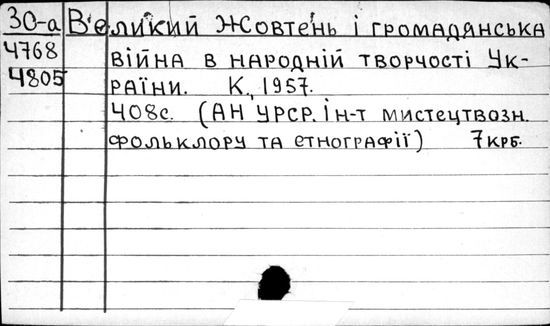 30-а Великий Жовтень і громадянська
4768 війна в народній творчості Ук-
4805 раїни. К., 1957.
408с. (АН УРСР. Ін-т мистецтвозн.
фольклору та етнографії) 7крб.